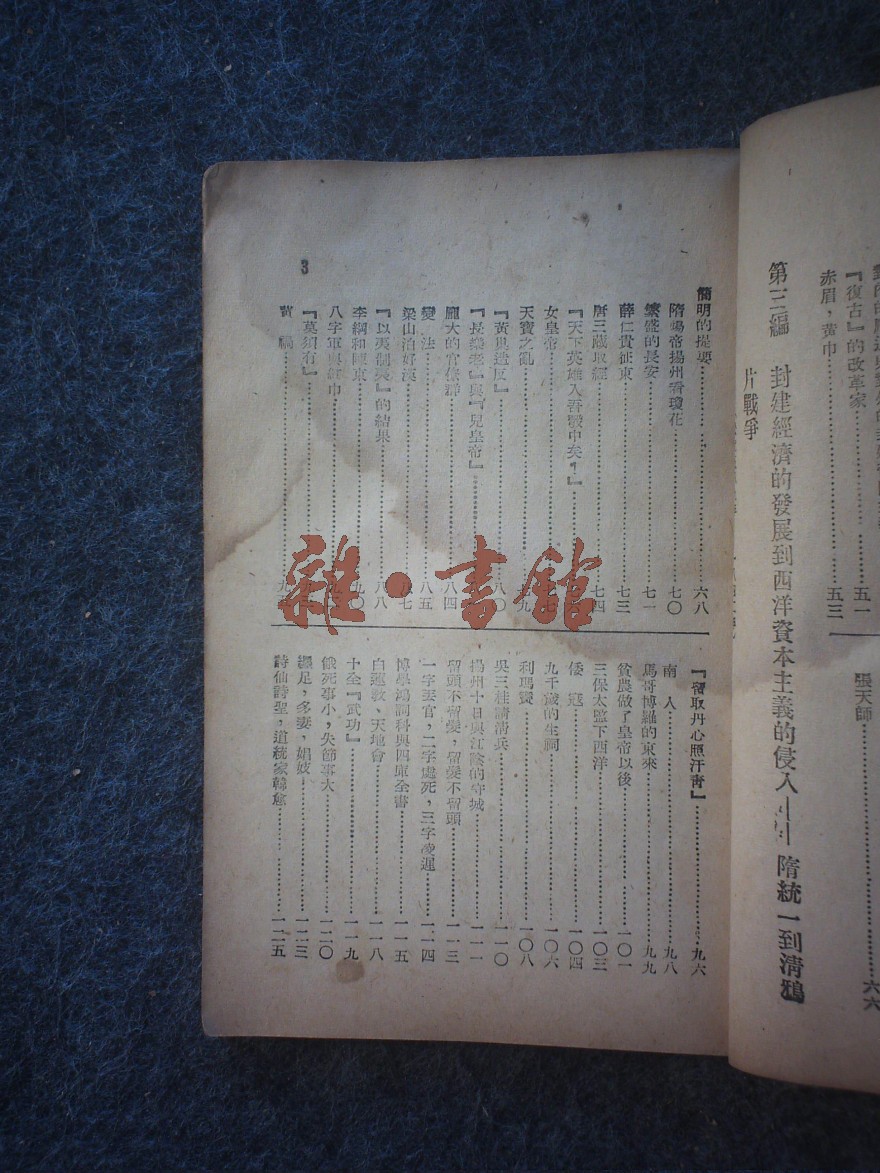 『復古』的改革家……五一
赤眉,黃巾……五三
張天師……六六
第三編 封建經濟的發展到西洋資本主義的侵入——隋統一到清鴉
片戰爭
簡明的提要……六八
隋煬帝揚州看瓊花……七〇
繁盛的長安……七一
薛仁貴征東……七三
唐三藏取經……七四
『天下英雄入吾彀中矣!』
女皇帝……七七
天寶之亂……七九
『黃巢造反』……八〇
『長樂老』與『兒皇帝』
龐大的官僚群……八四
變法……八五
梁山泊好漢……八七
『以夷制夷』的結果……八八
李綱和陳東……九〇
八字軍與紅巾
『莫須有』
黃禍
3
『留取丹心照汗青』……九六
南人……九八
馬哥博羅的東來……九九
貧農做了皇帝以後……一〇一
三保太監下西洋……一〇三
倭寇……一〇四
九千歲的生祠……一〇六
利瑪竇……一〇八
吳三桂請清兵……一一〇
揚州十日與江陰的守城……一一一
留頭不留髮,留髮不留頭……一一三
一字丟官,二字處死,三字凌遲……一一四
博學鴻詞科與四庫全書……一一五
白蓮教、天地會……一一八
十全『武功』……一一九
餓死事小,失節事大……一二〇
纏足,多妻,娼妓……一二三
詩仙詩聖,道統家韓愈……一二五
雜·書館